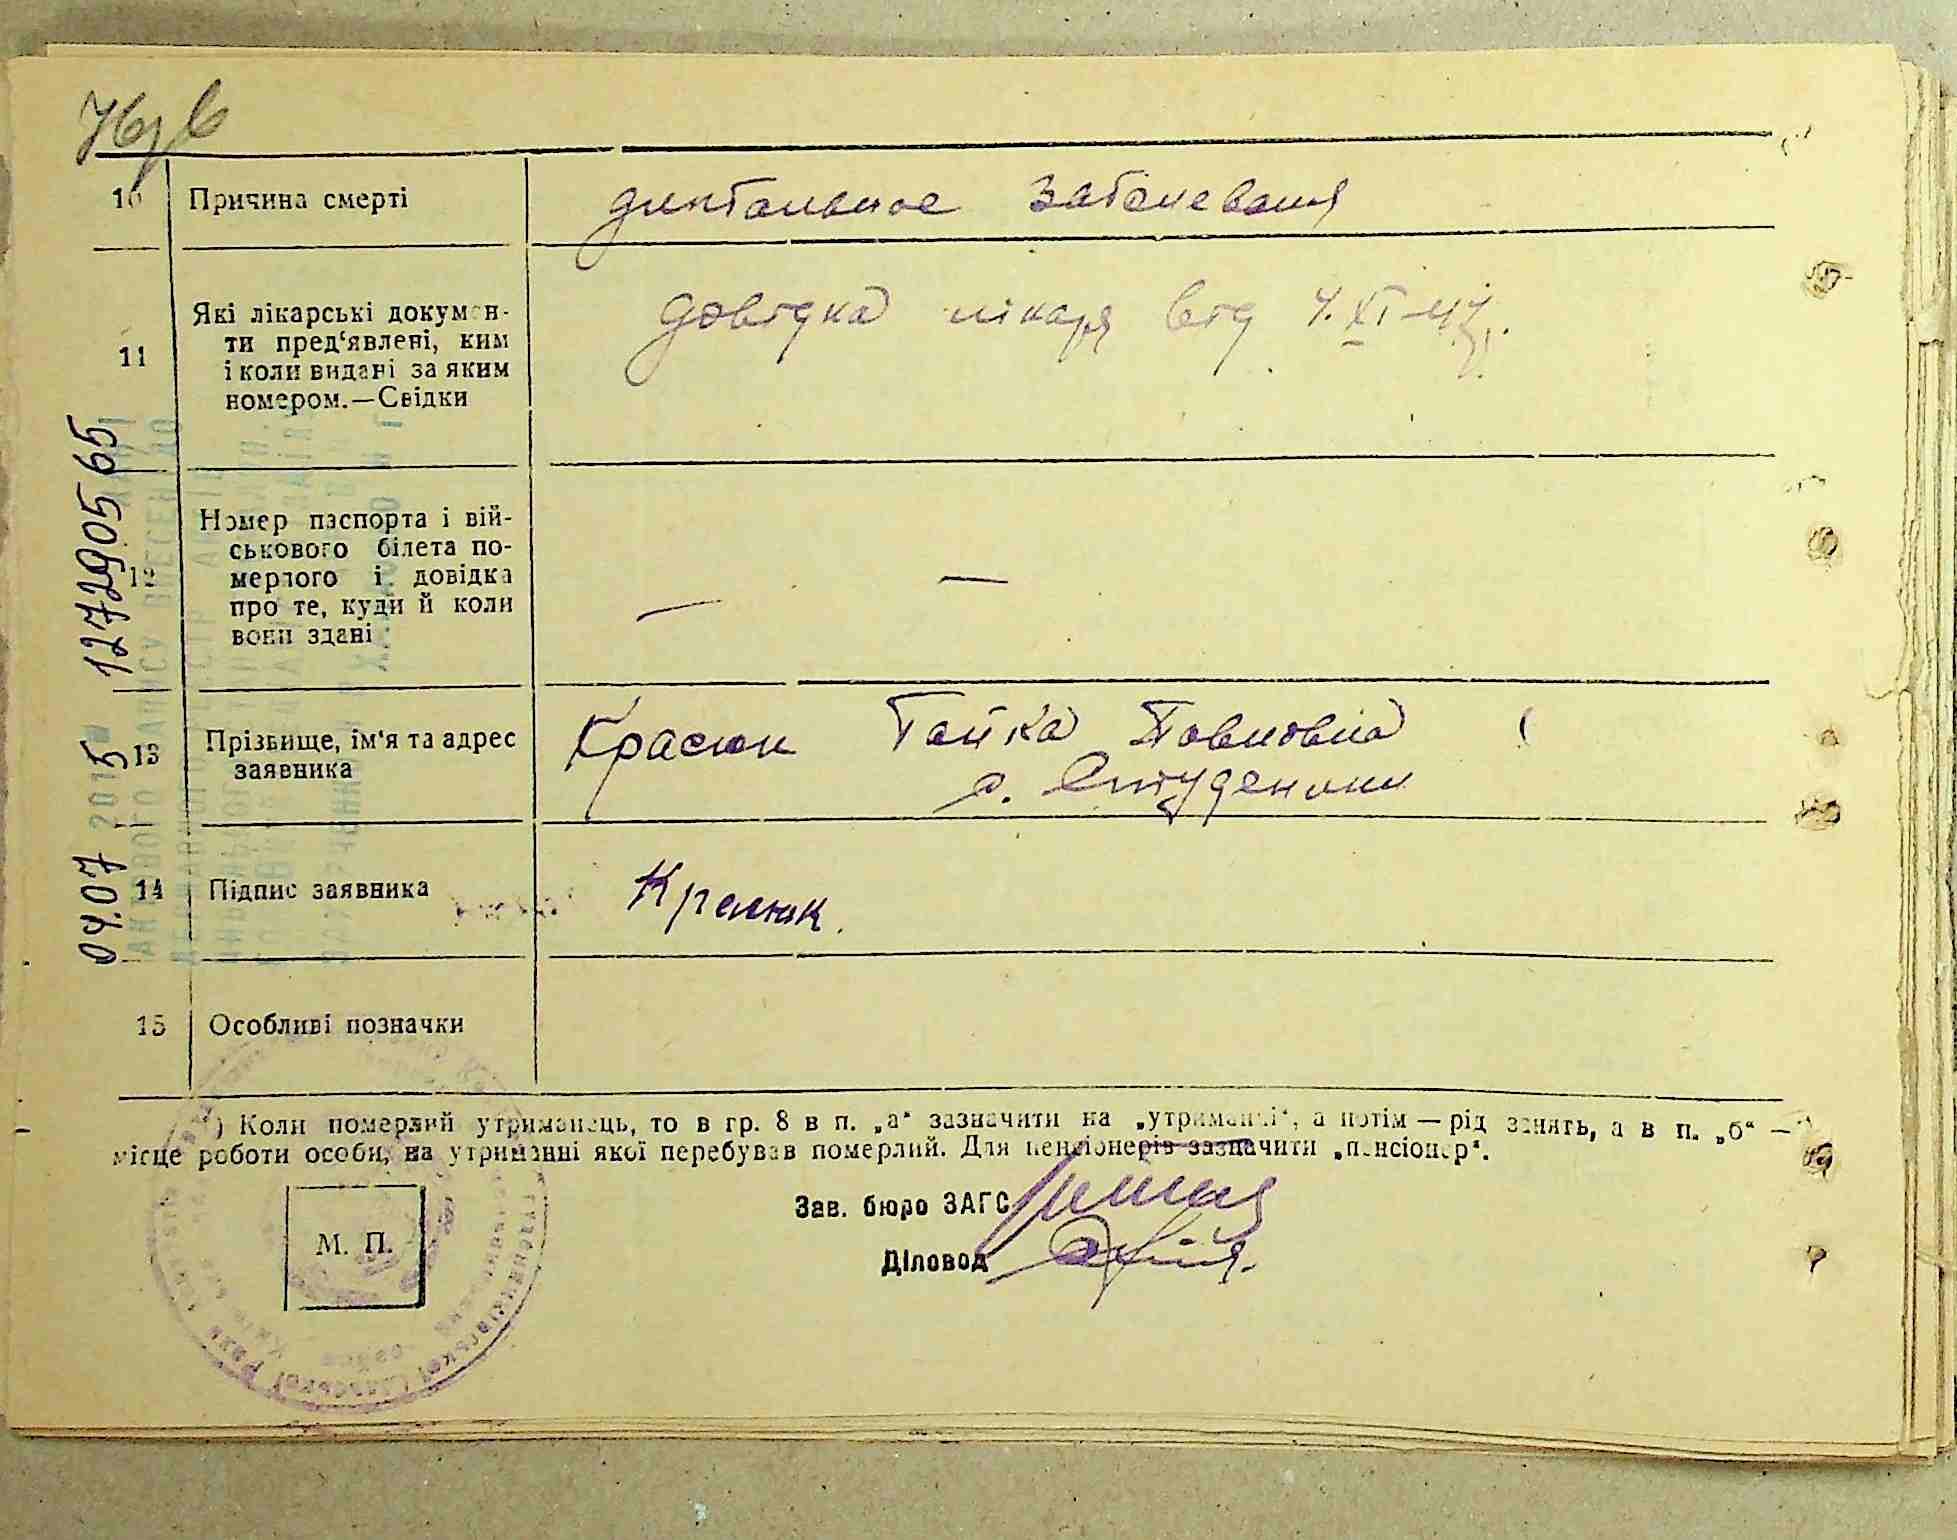 10 Причина смерті
заболевания
11 Які лікарські докумен-
ти пред‘явлені, ким
і коли видані за яким
номером.—Свідки
довідка лікаря від
12 Номер паспорта і вій-
ськового білета по-
мерлого і довідка
про те, куди й коли
вони здані
— —
13 Прізвище, ім‘я та адрес
заявника
Красюк Ганка Павловна
с.
14 Підпис заявника
Красюк
15 Особливі позначки
*) Коли померлий утриманець, то в гр. 8 в п. „а“ зазначити на „утриманні“, а потім — рід занять, а в п. „б“ —
місце роботи особи, на утриманні якої перебував померлий. Для пенсіонерів зазначити „пенсіонер“.
Зав. бюро ЗАГС
Діловод
М. П.
04.07 2015 127290565